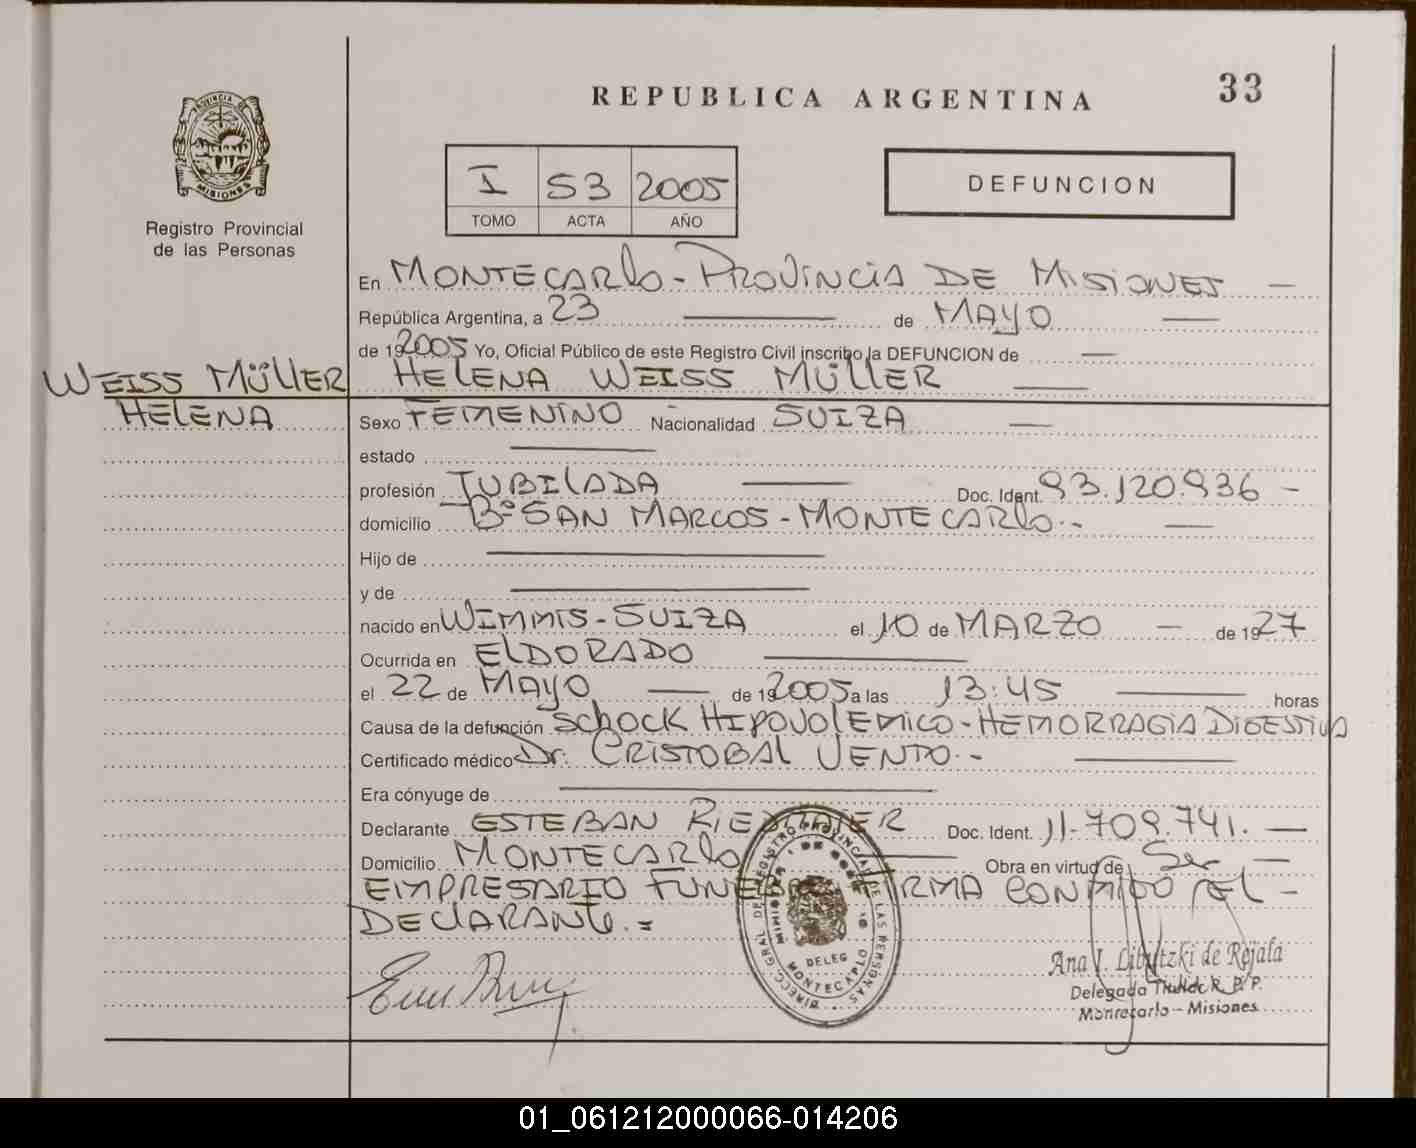 REPUBLICA ARGENTINA
33
PROVINCIA DE MISIONES
Registro Provincial
de las Personas
I 53 2005
TOMO ACTA AÑO
DEFUNCION
En MONTECARLO - PROVINCIA DE MISIONES -
República Argentina, a 23 de MAYO
de 192005 Yo, Oficial Público de este Registro Civil inscribo la DEFUNCION de
WEISS MÜLLER HELENA WEISS MÜLLER
HELENA Sexo FEMENINO Nacionalidad SUIZA
estado
profesión JUBILADA Doc. Ident. 93.120.936 -
domicilio Bº SAN MARCOS - MONTECARLO.-
Hijo de
y de
nacido en WIMMIS - SUIZA el 10 de MARZO - de 1927
Ocurrida en ELDORADO
el 22 de MAYO de 192005 a las 13:45 horas
Causa de la defunción SCHOCK HIPOVOLEMICO - HEMORRAGIA DIGESTIVA
Certificado médico Dr. CRISTOBAL VENTO.-
Era cónyuge de
Declarante ESTEBAN Doc. Ident. 11.709.741.
Domicilio MONTECARLO Obra en virtud de Ser
EMPRESARIO FIRMA CONMIGO EL -
DECLARANTE.=
DELEG
MONTECARLO
Ana I. Libutzki de Rejala
Delegada Titular R. P. P.
Montecarlo - Misiones
01_061212000066-014206